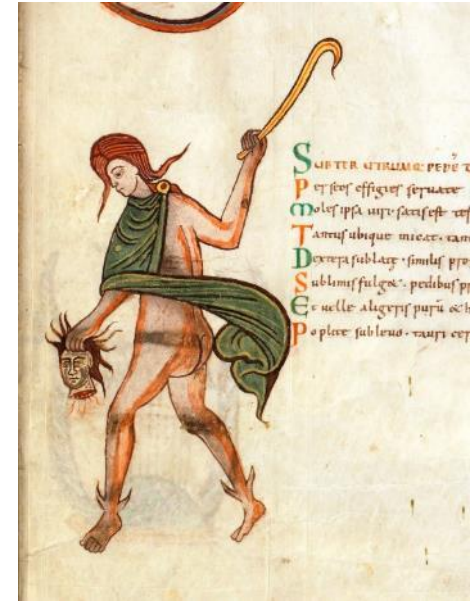 SUBTER UTRUMQ: PEDĒ
Perseos effigies seruate
Moles ipsa uiri satis est tes
Tantus ubique micat. tan
Dextera sublate. similis pro
Sublimis fulget. pedibus pr
Et uelle aligeris purū
Poplite sub leuo. tauri cer